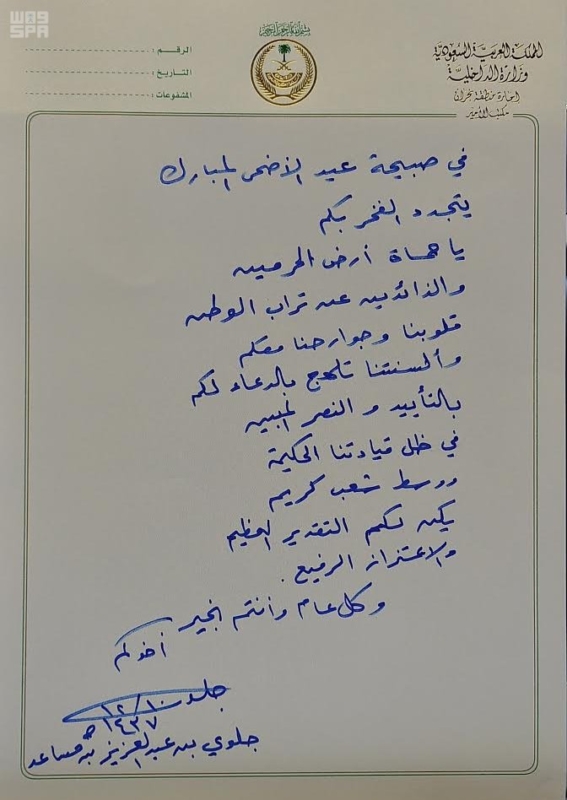 واس
WAS
SPA
بسم الله الرحمن الرحيم
المملكة العربية السعودية
وزارة الداخلية
إمارة منطقة نجران
مكتب الأمير
الرقم :
التاريخ :
المشفوعات :
في صبيحة عيد الأضحى المبارك
يتجدد الفخر بكم
يا حماة أرض الحرمين
والذائدين عن تراب الوطن
قلوبنا وجوارحنا معكم
وألسنتنا تلهج بالدعاء لكم
بالتأييد و النصر المبين
في ظل قيادتنا الحكيمة
ووسط شعب كريم
يكن لكم التقدير العظيم
والاعتزاز الرفيع .
وكل عام وأنتم بخير
أخوكم
١٢/١٠
١٤٣٧ هـ
جلوي بن عبدالعزيز بن مساعد